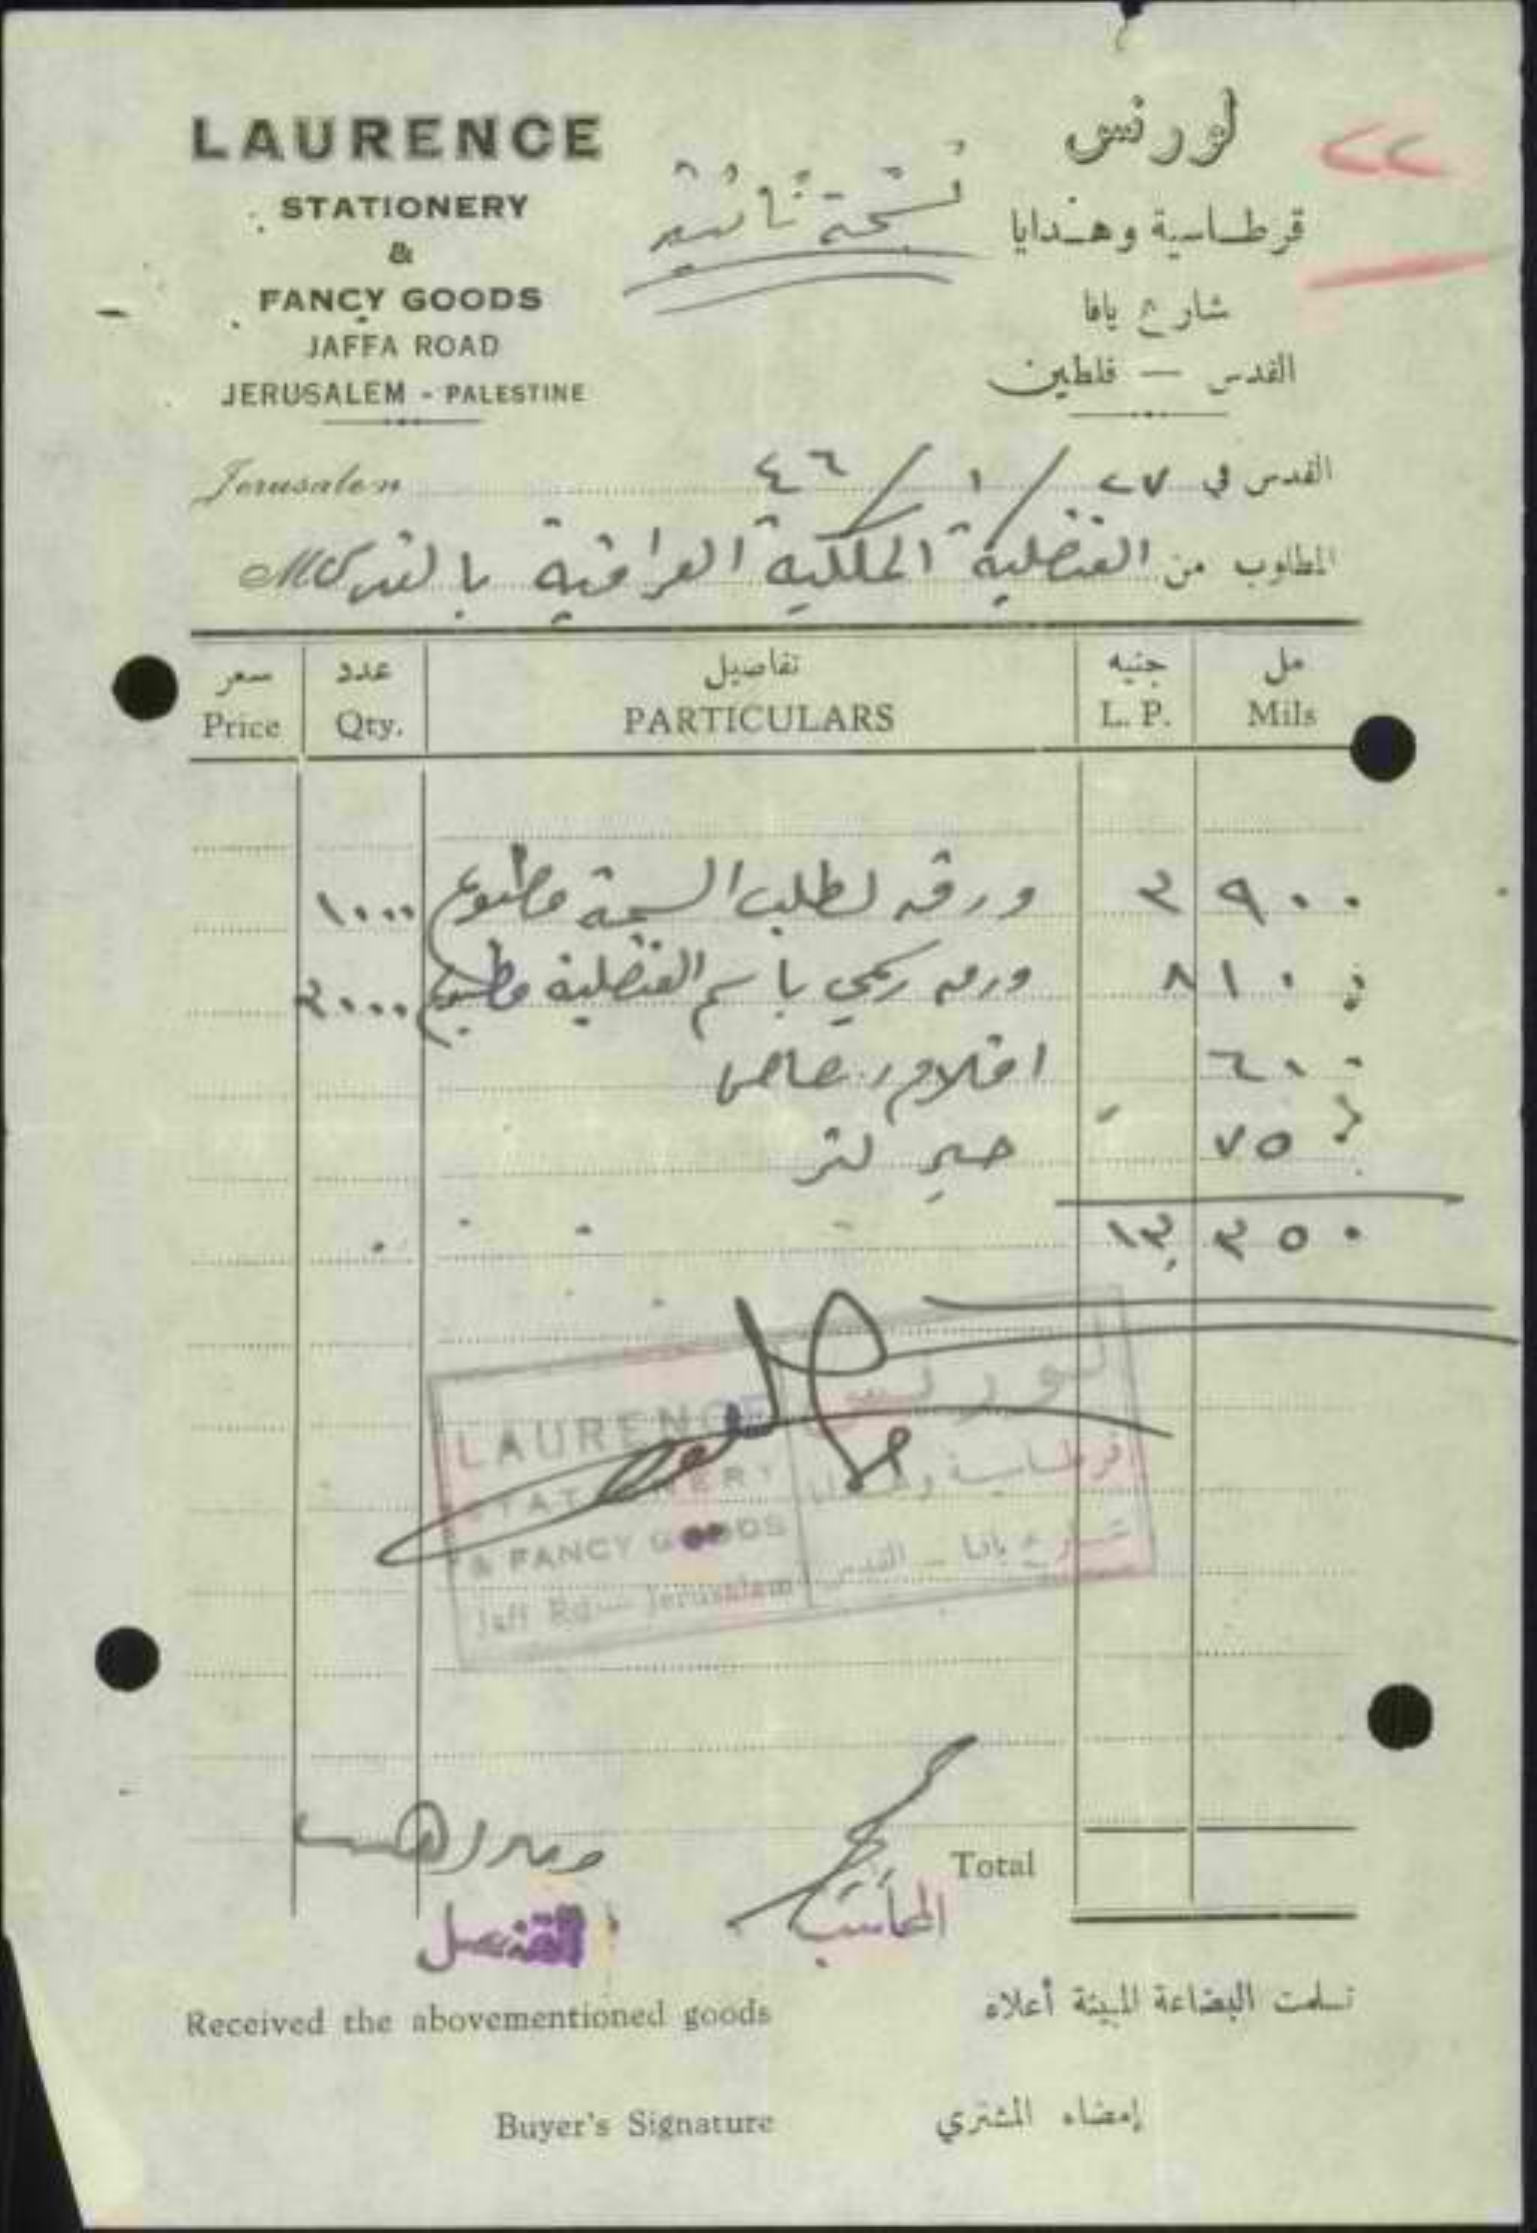 LAURENCE
STATIONERY
&
FANCY GOODS
JAFFA ROAD
JERUSALEM - PALESTINE
نسخة ثانية
لورنس
قرطاسية وهدايا
شارع يافا
القدس — فلطين
٢٢
Jerusalem القدس في ٢٧ / ١ / ٤٦
المطلوب من القنصلية الملكية العراقية بالقدس M
سعر عدد تفاصيل جنيه مل
Price Qty. PARTICULARS L. P. Mils
١٠٠٠ ورقه لطلب السمة مطبوع ٣ ٩٠٠
٢٠٠٠ ورقه رسمي باسم القنصلية مطبوع ٨ ١٠
اقلام رصاص ٦٠٠
حبر لتر ٧٥
١٣ ٣٥٠
LAURENCE
STATIONERY
& FANCY GOODS
Jaff Rd — Jerusalem
لورنس
قرطاسية وهدايا
شارع يافا — القدس
Total
القنصل المحاسب
Received the abovementioned goods تسلمت البضاعة المبينة أعلاه
Buyer's Signature إمضاء المشتري